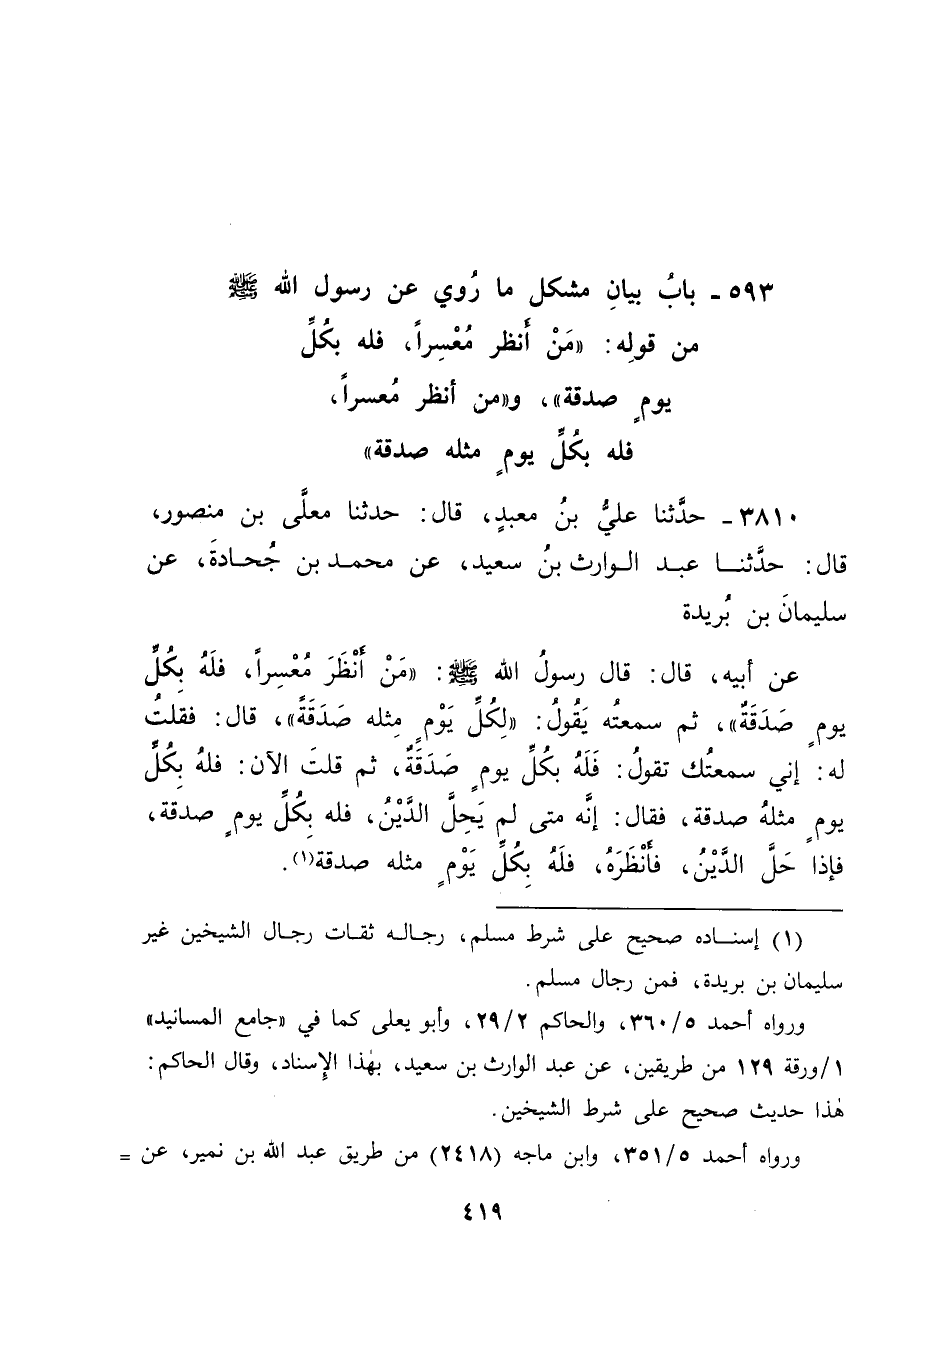 ٥٩٣ - بابُ بيانِ مشكل ما رُوي عن رسول الله ﷺ
من قولِه: «مَنْ أَنظر مُعْسِراً، فله بكُلِّ
يومٍ صدقة»، و«من أنظر مُعسراً،
فله بكُلِّ يومٍ مثله صدقة»
٣٨١٠ - حدَّثنا عليُّ بنُ معبدٍ، قال: حدثنا معلَّى بن منصور،
قال: حدَّثنا عبد الوارث بنُ سعيد، عن محمد بن جُحادةَ، عن
سليمانَ بن بُريدة
عن أبيه، قال: قال رسولُ الله ﷺ: «مَنْ أَنْظَرَ مُعْسِراً، فَلَهُ بِكُلِّ
يومٍ صَدَقَةٌ»، ثم سمعتُه يَقُولُ: «لِكُلِّ يَوْمٍ مِثله صَدَقَةً»، قال: فقلتُ
له: إني سمعتُك تقولُ: فَلَهُ بكُلِّ يومٍ صَدَقَةٌ، ثم قلتَ الآن: فلهُ بِكُلِّ
يومٍ مثلهُ صدقة، فقال: إنَّه متى لم يَحِلَّ الدَّيْنُ، فله بِكُلِّ يومٍ صدقة،
فإذا حَلَّ الدَّيْنُ، فأَنْظَرَهُ، فَلَهُ بِكُلِّ يَوْمٍ مثله صدقة(١).
(١) إسناده صحيح على شرط مسلم، رجاله ثقات رجال الشيخين غير
سليمان بن بريدة، فمن رجال مسلم.
ورواه أحمد ٣٦٠/٥، والحاكم ٢٩/٢، وأبو يعلى كما في «جامع المسانيد»
١/ورقة ١٢٩ من طريقين، عن عبد الوارث بن سعيد، بهٰذا الإسناد، وقال الحاكم:
هٰذا حديث صحيح على شرط الشيخين.
ورواه أحمد ٣٥١/٥، وابن ماجه (٢٤١٨) من طريق عبد الله بن نمير، عن =
٤١٩